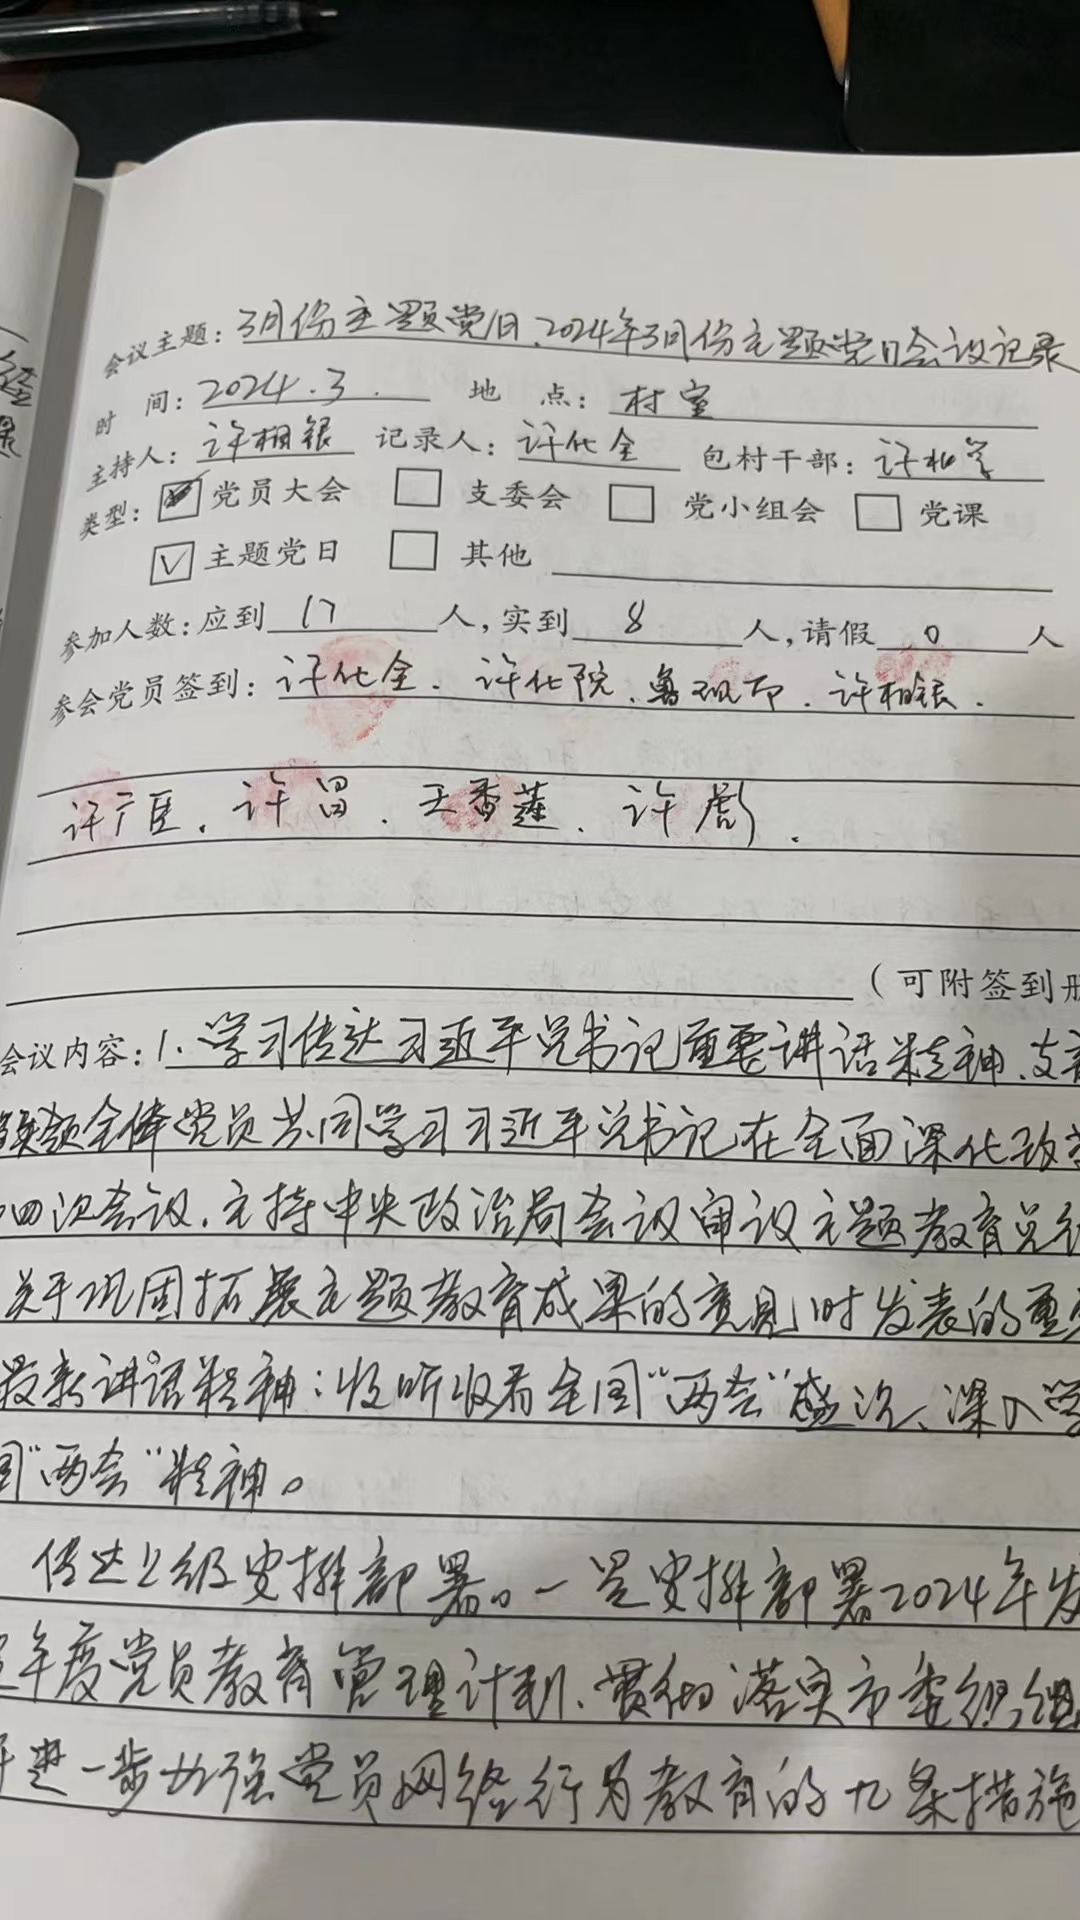 会议主题：3月份主题党日、2024年3月份主题党日会议记录
时 间：2024.3. 地 点：村室
主持人：许相银 记录人：许化全 包村干部：许
类型：☑党员大会 □支委会 □党小组会 □党课
☑主题党日 □其他
参加人数：应到17人，实到8人，请假0人
参会党员签到：许化全、许化院、鲁、许相银、
许广臣、许昌、王香莲、许彪、
（可附签到册
会议内容：1、学习传达习近平总书记重要讲话精神、支
领全体党员共同学习习近平总书记在全面深化改
四次会议、主持中央政治局会议审议主题教育总结
关于巩固拓展主题教育成果的意见时发表的重要
最新讲话精神：收听收看全国“两会”盛况、深入学
国“两会”精神。
传达上级安排部署。一是安排部署2024年发
年度党员教育管理计划、贯彻落实市委组织
进一步加强党员网络行为教育的九条措施